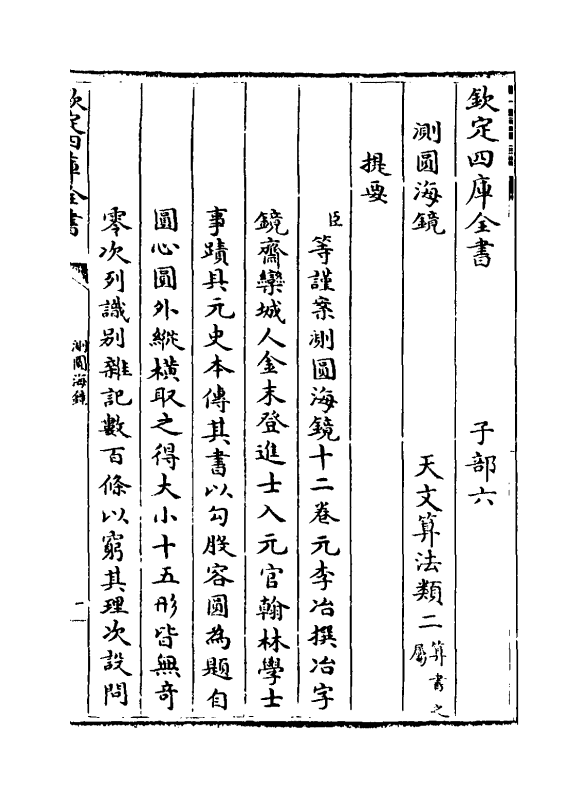 欽定四庫全書　子部六
測圓海鏡　天文算法類二算書之屬
提要
臣等謹案測圓海鏡十二卷元李冶撰冶字
鏡齋欒城人金末登進士入元官翰林學士
事蹟具元史本傳其書以勾股容圓為題自
圓心圓外縱橫取之得大小十五形皆無奇
零次列識別雜記數百條以窮其理次設問
欽定四庫全書
測圓海鏡
一